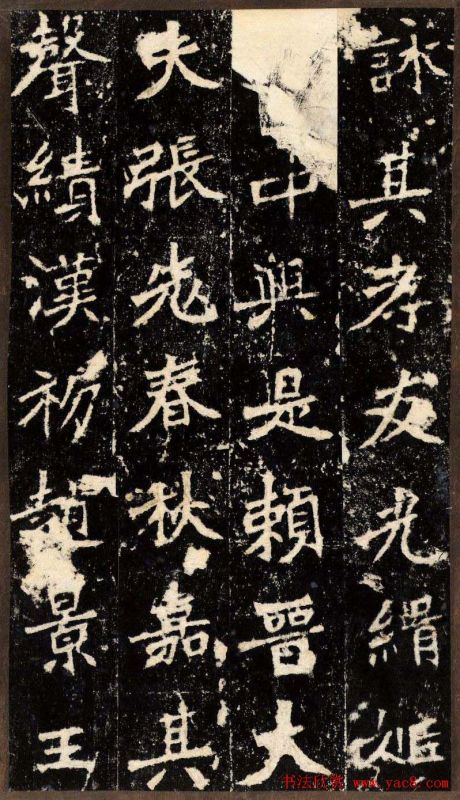 詠其孝友光緝姬
中興是賴晉大
夫張老春秋嘉其
聲績漢初趙景王
书法欣赏 www.yac8.com